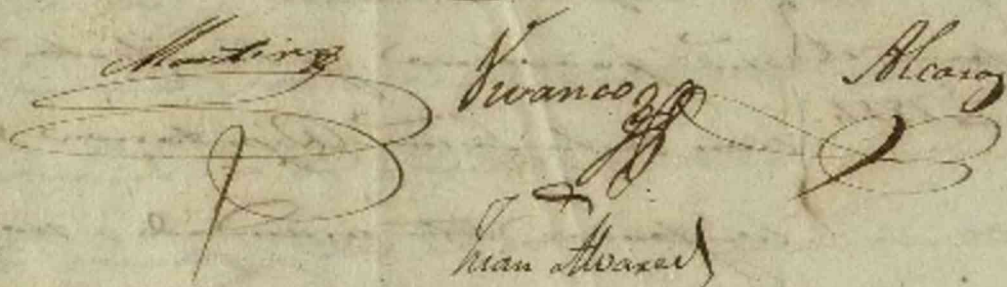 Martinz Vivanco Alcaraz
Juan Alvarez